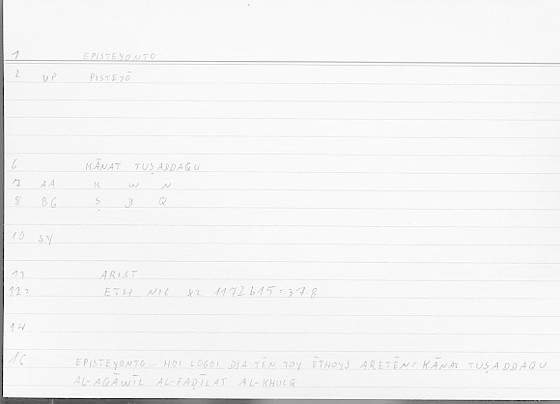 1 EPISTEYONTO
2 VP PISTEYŌ
6 KĀNAT TUṢADDAQU
7 AA K W N
8 BG Ṣ D Q
10 SY
11 ARIST
12 ETH NIC X2 1172 b15 = 37.8
14
16 EPISTEYONTO HOI LOGOI DIA TĒN TOY ĒTHOYS ARETĒN: KĀNAT TUṢADDAQU
AL-AQĀWĪL AL-FAḌĪLAT AL-KHULQ